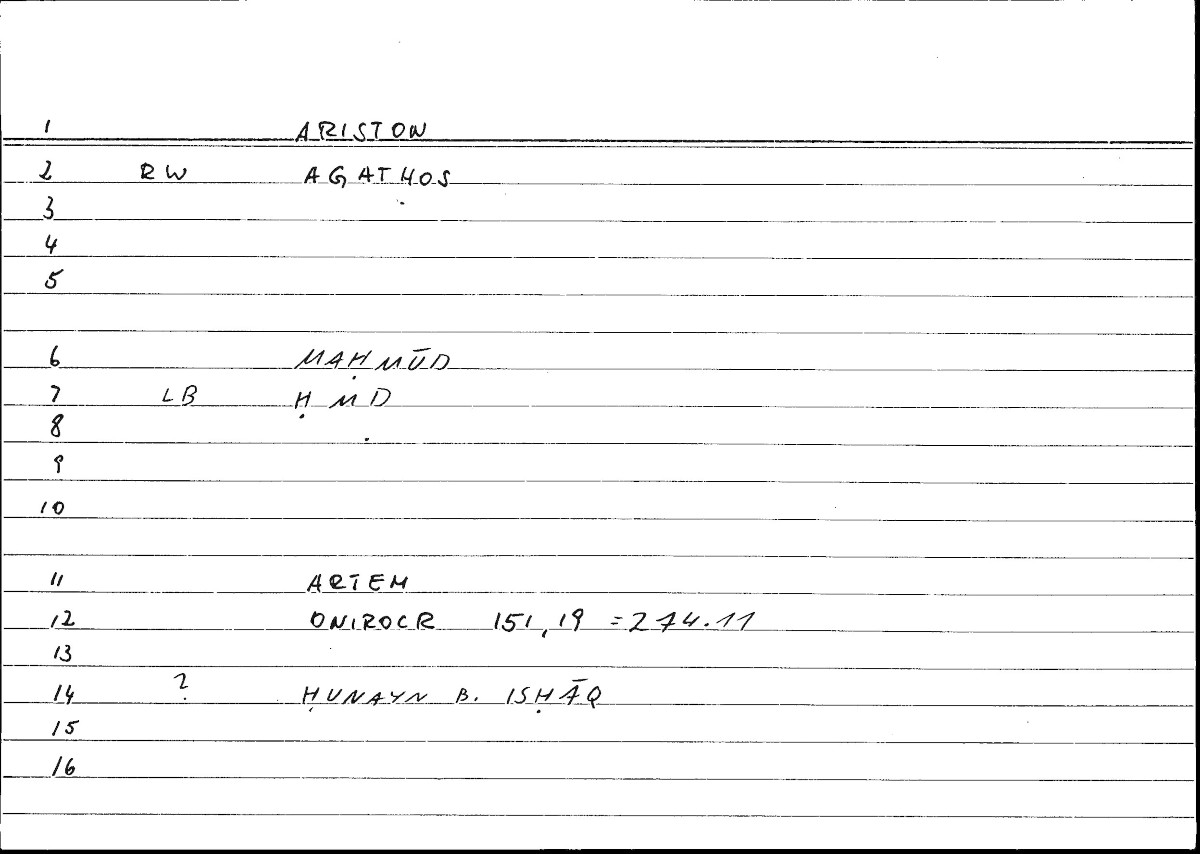 1 ARISTON
2 RW AGATHOS
3
4
5
6 MAḤMŪD
7 LB Ḥ M D
8
9
10
11 ARTEM
12 ONIROCR 151,19 = 274.11
13
14 ? ḤUNAYN B. ISḤĀQ
15
16